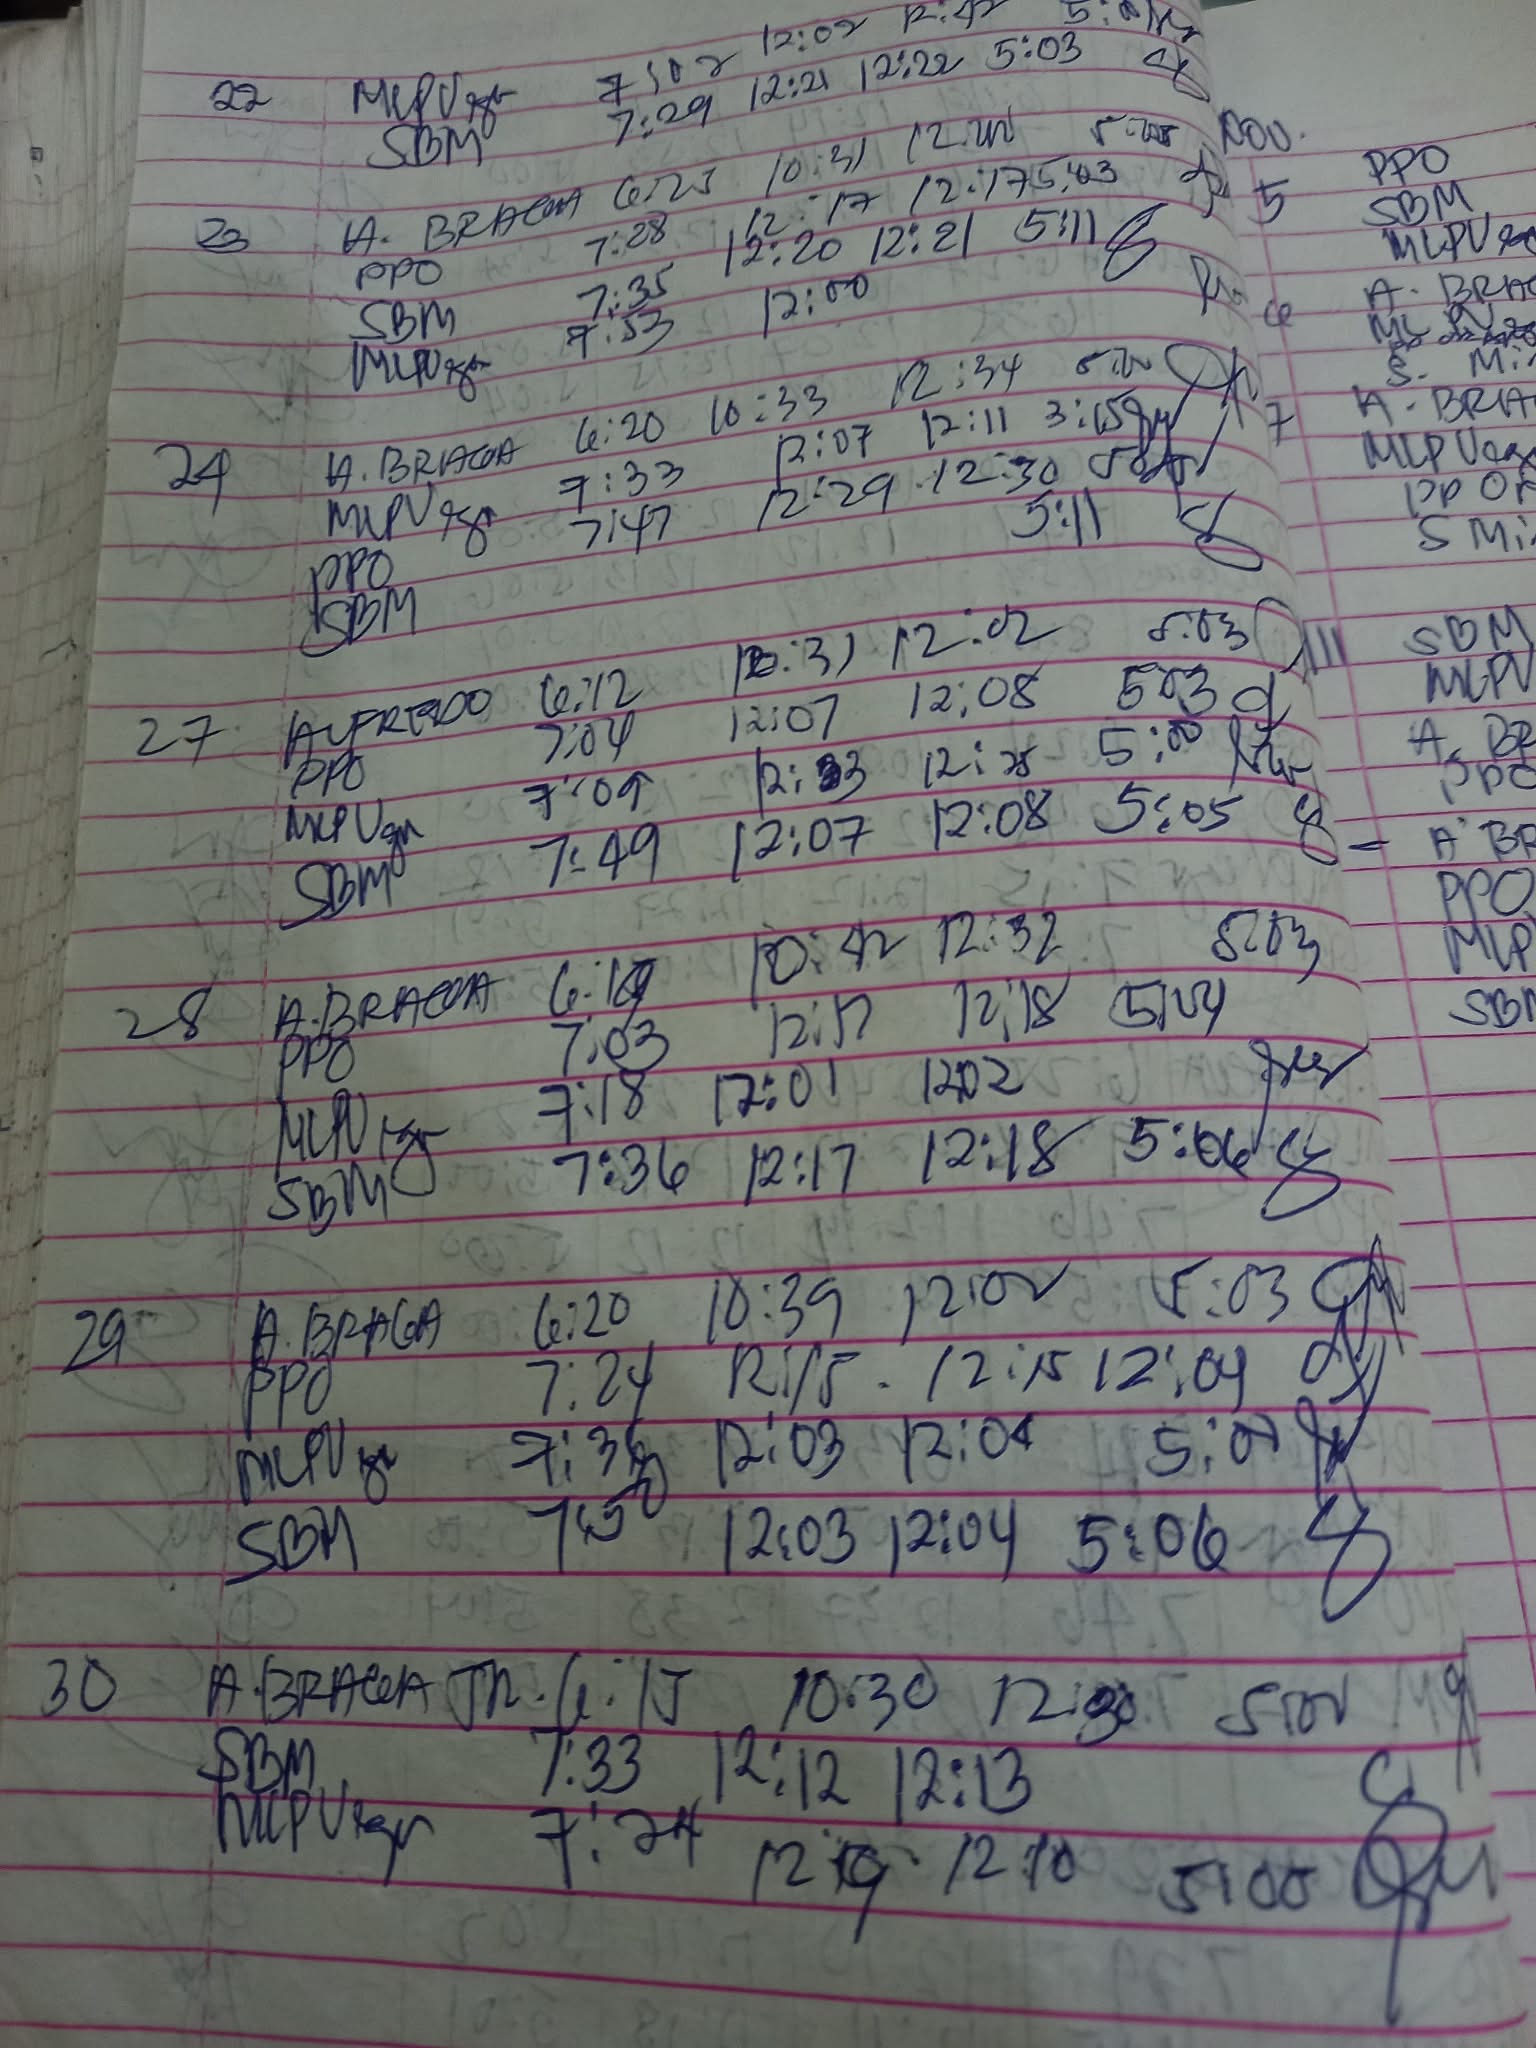 22 MLPV 7:02 12:02 12:42
SBM 7:29 12:21 12:22 5:03
23 A. BRAGA 6:25 10:31
PPO 7:28 12:17 12:17 5:03
SBM 7:35 12:20 12:21 5:11
MLPV 7:53 12:00
24 A. BRAGA 6:20 10:33 12:34
MLPV 7:33 12:07 12:11 3:15
PPO 7:47 12:29 12:30
SBM 5:11
27 ALFREDO 6:12 10:31 12:02 5:03
PPO 7:04 12:07 12:08 5:03
MLPV 7:09 12:33 5:00
SBM 7:49 12:07 12:08 5:05
28 A. BRAGA 10:42 12:32 5:03
PPO 7:03 12:17 12:18 5:04
MLPV 7:18 12:01 1202
SBM 7:36 12:17 12:18 5:06
29 A. BRAGA 6:20 10:39 12:02 5:03
PPO 7:24 12:15 12:15 12:04
MLPV 12:03 12:04
SBM 7:50 12:03 12:04 5:06
30 A. BRAGA JR. 6:15 10:30 12:30 5:02
SBM 7:33 12:12 12:13
MLPV 7:24 12:10 5:00
NOV.
5 PPO
SBM
MLPV
6 A. BRAG
S. Mi
7 A. BRA
MLPV
PPO
S Mi
SBM
MLPV
A. BR
PPO
A BR
PPO
MLP
SBM